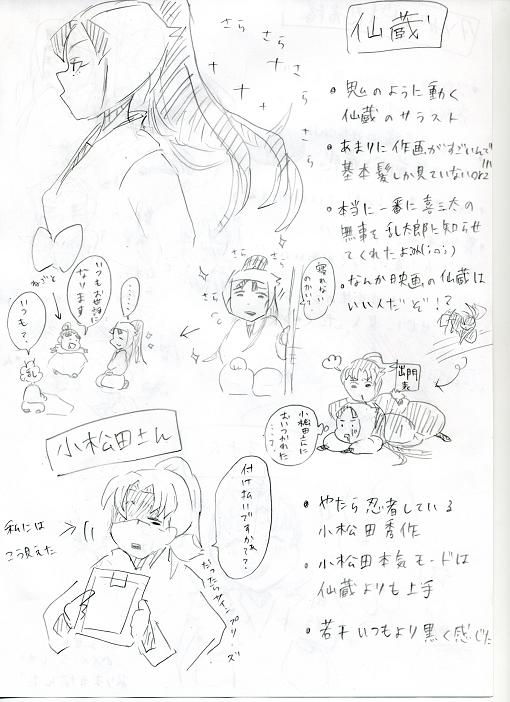 仙蔵
さら
さら
さら
さら
さら
さら
・鬼のように動く
仙蔵のサラスト
・あまりに作画がすごいんで
基本髪しか見ていないorz
・本当に一番に喜三太の
無事を乱太郎に知らせ
てくれたよ
・なんか映画の仙蔵は
いい人だぞ!?
寝れない
のかい?
さら
さら
‥‥‥
いつもお世話に
なります
ねごと
いつも?
乱
出門表
小松田さんに
おいつかれた
‥‥?
小松田さん
付け払いですかぁ?
だったらサインプリーズ
私には
こう見えた
・やたら忍者している
小松田秀作
・小松田本気モードは
仙蔵よりも上手
・若干いつもより黒く感じた